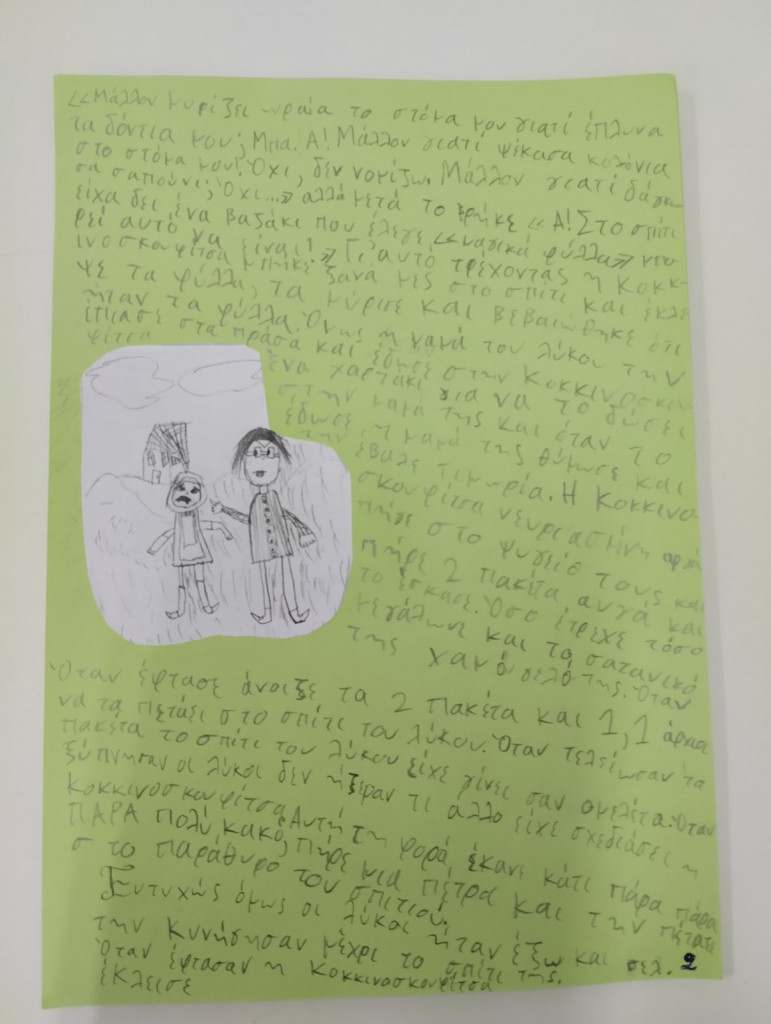 «Μάλλον μυρίζει ωραία το στόμα μου γιατί έπλυνα
τα δόντια μου; Μπα. Α! Μάλλον γιατί ψέκασα κολόνια
στο στόμα μου! Όχι, δεν νομίζω. Μάλλον γιατί δάγκω
σα σαπούνι; Όχι...» αλλά μετά το βρήκε «Α! Στο σπίτι
είχα δει ένα βαζάκι που έλεγε «μαγικά φύλλα» μπο
ρεί αυτό να είναι!» Γι'αυτό τρέχοντας η Κοκκ-
ινοσκουφίτσα μπήκε ξανά μες στο σπίτι και έκλε
ψε τα φύλλα, τα μύρισε και βεβαιώθηκε ότι
ήταν τα φύλλα. Όμως η μαμά του λύκου την
έπιασε στα πράσα και έδωσε στην Κοκκινοσκου-
φίτσα ένα χαρτάκι για να το δώσει
στην μαμά της και όταν το
έδωσε η μαμά της θύμωσε και
την έβαλε τιμωρία. Η Κοκκινο-
σκουφίτσα νευριασμένη
πήγε στο ψυγείο τους και
πήρε 2 πακέτα αυγά και
το έσκασε. Όσο έτρεχε τόσο
μεγάλωνε και το σατανικό
της χαμόγελό της. Όταν
Όταν έφτασε άνοιξε τα 2 πακέτα και 1, 1 άρχισε
να τα πετάει στο σπίτι του λύκου. Όταν τελείωσαν τα
πακέτα το σπίτι του λύκου είχε γίνει σαν ομελέτα. Όταν
ξύπνησαν οι λύκοι δεν ήξεραν τι άλλο είχε σχεδιάσει η
Κοκκινοσκουφίτσα. Αυτή τη φορά έκανε κάτι πάρα πάρα
ΠΑΡΑ πολύ κακό, πήρε μια πέτρα και την πέταξε
στο παράθυρο του σπιτιού.
Ευτυχώς όμως οι λύκοι ήταν έξω και
την κυνήγησαν μέχρι το σπίτι της. σελ. 2
Όταν έφτασαν η Κοκκινοσκουφίτσα
έκλεισε